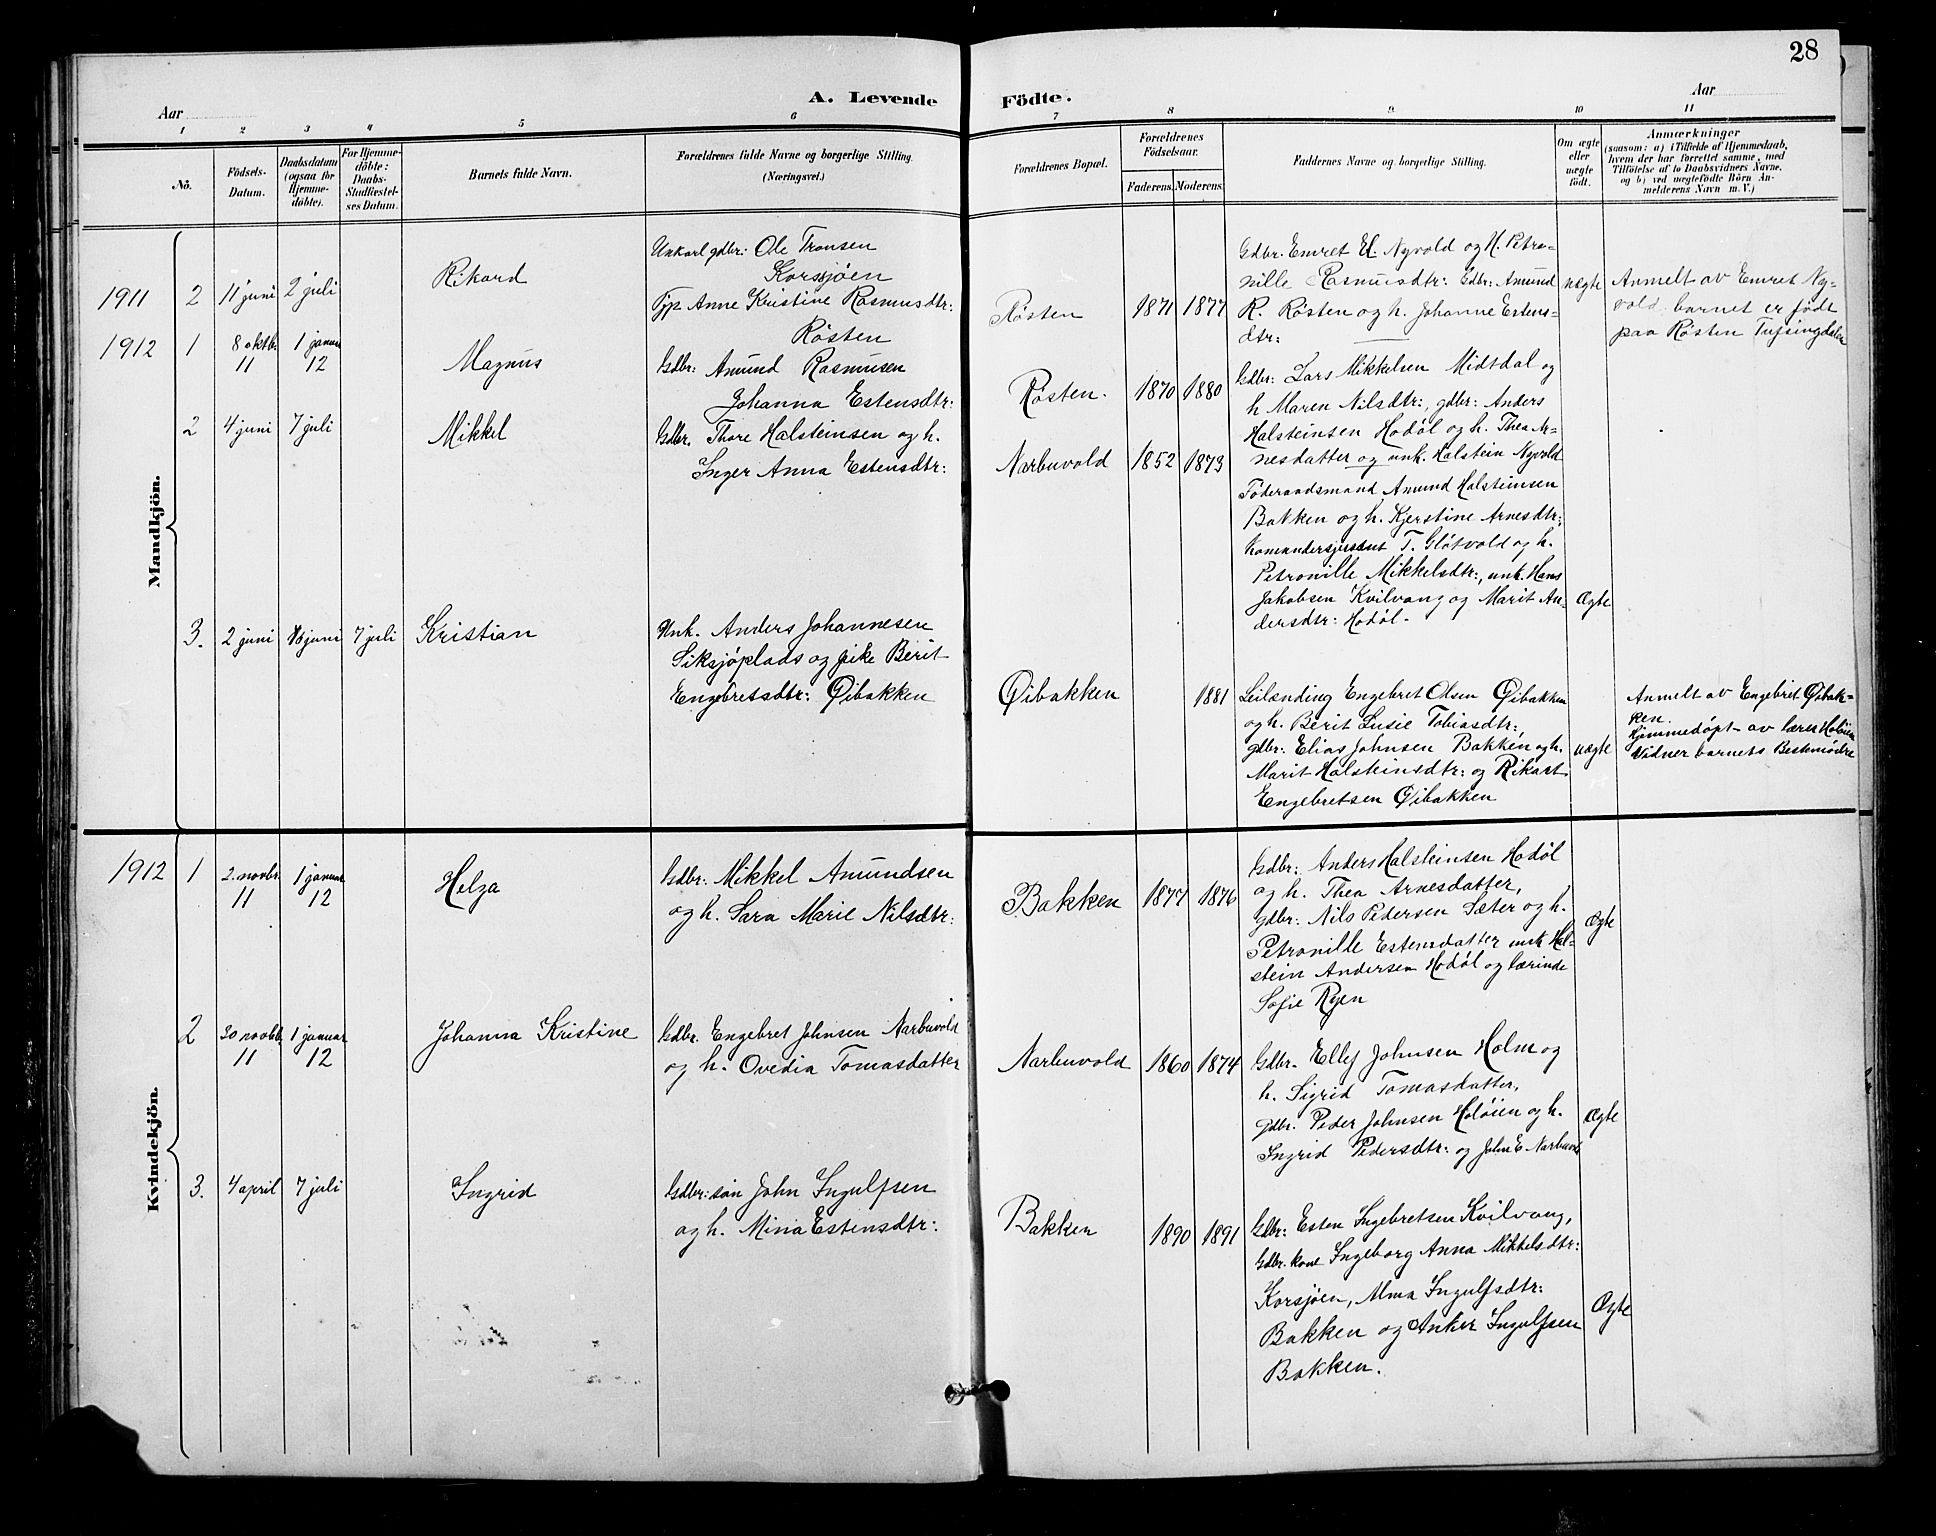 28
A. Levende Födte.
Aar
Aar
1 2 3 4 5 6 7 8 9 10 11
Nô.
Födsels-
Datum.
Daabsdatum
(ogsaa for
Hjemme-
döbte).
For Hjemme-
döbte:
Daabs-
Stadfæstel-
ses Datum.
Barnets fulde Navn.
Forældrenes fulde Navne og borgerlige Stilling.
(Næringsvei.)
Forældrenes Bopæl.
Forældrenes
Födselsaar.
Faderens. Moderens.
Faddernes Navne og borgerlige Stilling.
Om ægte
eller
uægte
födt.
Anmærkninger
(saasom: a) i Tilfælde af Hjemmedaab,
hvem der har forrettet samme, med
Tilföielse af to Daabsvidners Navne,
og b) ved uægtefödte Börn An-
melderens Navn m. V.)
Mandkjön.
1911 2 11 juni 2 juli
Rikard
Unkarl gdbr: Ole Tronsen
Korssjøen
Pp. Anne Kristine Rasmusdtr:
Røsten
Røsten
1871 1877
Gdbr. Emret E. Nyvold og H. Petro-
nille Rasmusdtr: Gdbr: Amund
R. Røsten og h. Johanne Estens-
dtr:
uægte
Anmelt av Emret Ny-
vold. barnet er født
paa Røsten Tufsingdalen
1912 1 8 oktb. 11 1 januar 12
Magnus
Gdbr: Amund Rasmusen
Johanna Estensdtr:
Røsten.
1870 1880
Gdbr: Lars Mikkelsen Midtdal og
h Maren Nilsdtr:, gdbr: Anders
Halsteinsen Hodøl og h. Thea Ar-
nesdatter og unk. Halstein Nyvold
2 4 juni 7 juli
Mikkel
Gdbr. Thore Halsteinsen og h.
Inger Anna Estensdtr:
Narbuvold
1852 1873
Føderaadsmand Amund Halsteinsen
Bakken og h. Kjerstine Arnesdtr:,
Komandersjersant T. Gløtvold og h.
Petronille Mikkelsdtr:, unk. Hans
Jakobsen Kvilvang og Marit An-
dersdtr: Hodøl.
Ægte
3. 2 juni 16 juni 7 juli
Kristian
Unk. Anders Johannesen
Siksjøplads og pike Berit
Engebretsdtr: Øibakken
Øibakken
1881
Leilending Engebret Olsen Øibakken
og h. Berit Lusie Tobiasdtr:,
gdbr: Elias Johnsen Bakken og h.
Marit Halsteinsdtr: og Rikart
Engebretsen Øibakken
uægte
Anmelt av Engebret Øibak-
ken.
Hjemmedøpt av lærer Holøien
Vidner barnets Bestemødre
Kvindekjön.
1912 1 2. novbr. 11 1 januar 12
Helga
Gdbr: Mikkel Amundsen
og h. Sara Marie Nilsdtr:
Bakken
1877 1876
Gdbr: Anders Halsteinsen Hodøl
og h. Thea Arnesdatter,
gdbr: Nils Pedersen Sæter og h.
Petronille Estensdatter unk Hal-
stein Andersen Hodøl og lærinde
Sofie Ryen
Ægte
2 30 novbb. 11 1 januar 12
Johanna Kristine
Gdbr. Engebret Johnsen Narbuvold
og h. Ovedia Tomasdatter
Narbuvold
1860 1874
Gdbr. Ellef Johnsen Holm og
h. Sigrid Tomasdatter,
gdbr. Peder Johnsen Holøien og h.
Ingrid Pedersdtr: og John E. Narbuvo
Ægte
3. 4 april 7 juli
Ingrid
Gdbr: søn John Ingulfsen
og h. Mina Estensdtr:
Bakken
1890 1891
Gdbr: Esten Ingebretsen Kvilvang,
Gdbr. kone Ingeborg Anna Mikkelsdtr:
Korsjøen, Alma Ingulfsdtr:
Bakken og Anker Ingulfsen
Bakken.
Ægte